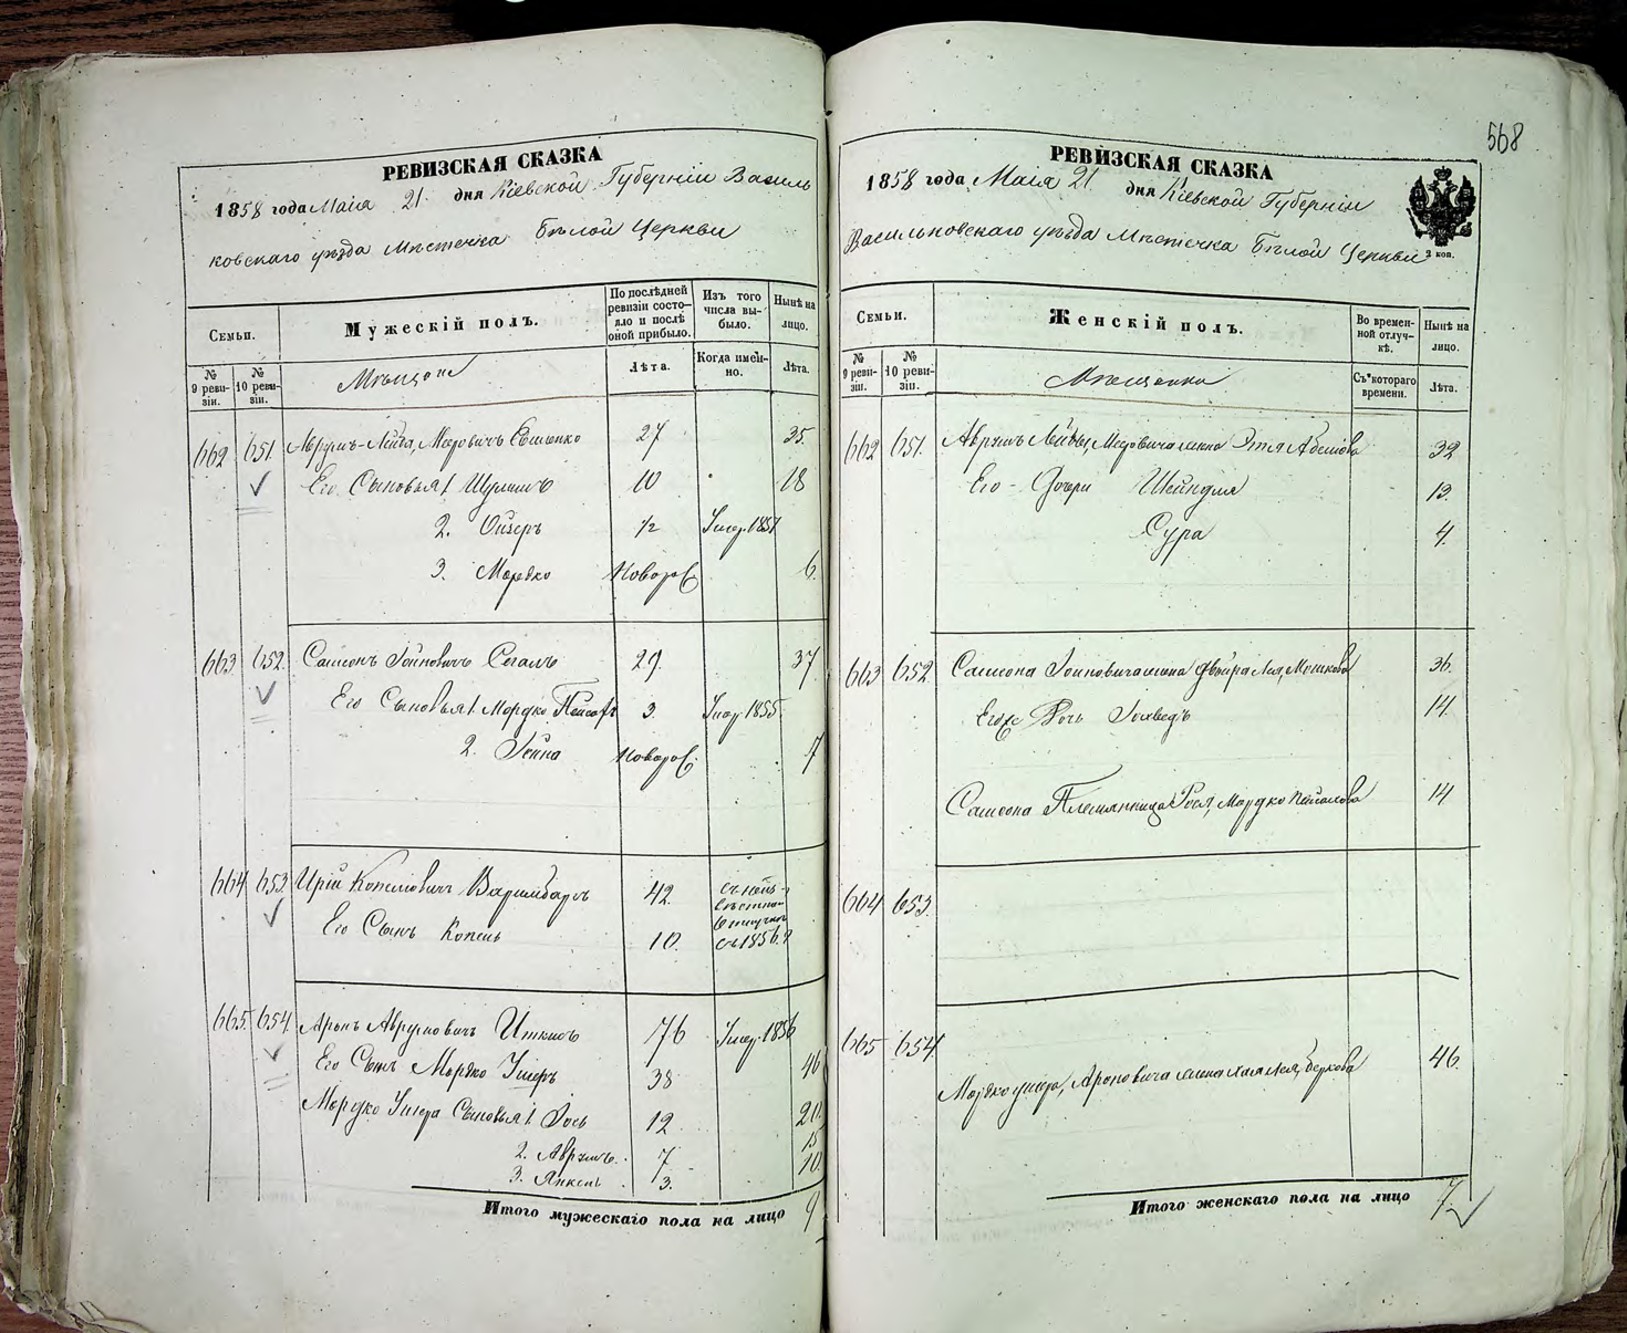 568
РЕВИЗСКАЯ СКАЗКА
1858 года Маія 21 дня Кіевской Губерніи Василь
ковскаго уѣзда Мѣстечка Бѣлой Церкви
Семьи.
Мужескій полъ.
По послѣдней ревизіи состояло и послѣ оной прибыло.
Изъ того числа выбыло.
Нынѣ на лицо.
№ 9 ревизіи.
№ 10 ревизіи.
Мѣщане
Лѣта.
Когда именно.
Лѣта.
662 651 Аврумъ-Лейба, 27 35.
Его Сыновья 1. Шулимъ 10 18
2. Ойзеръ 1/2 Умер. 1851
3. Мордко Новорож 6.
663 652. Самсонъ Гойновичъ Сегалъ 29. 37
Его Сыновья 1. Мордко 3. Умер. 1855
2. Гойна Новорож. 7
664 653 42.
Его Сынъ Копель 10. съ 1856 г
665 654 Аронъ Аврумовичъ 76 Умер. 1856
Его Сынъ Мордко Ушеръ 38 46
Мордко Ушера Сыновья 1. 12 20
2. Аврумъ. 7 15
3. Янкель. 3. 10
Итого мужескаго пола на лицо 9
РЕВИЗСКАЯ СКАЗКА
1858 года Маія 21 дня Кіевской Губерніи
Васильковскаго уѣзда Мѣстечка Бѣлой Церкви
2 коп.
Семьи.
Женскій полъ.
Во временной отлучкѣ.
Нынѣ на лицо.
№ 9 ревизіи.
№ 10 ревизіи.
Мѣщанки
Съ котораго времени.
Лѣта.
662 651. Аврумъ Лейбы, жена Этля 32
Его Дочери Шейндля 13.
Сура 4.
663 652 Самсона Гойновича жена Двейра Лея, Мошкова 36.
Егоже Дочь Іохведъ 14.
Самсона Племянница Мордко 14
664 653.
665 654
Мордко Ушера, Ароновича жена Хая Лея, Беркова 46.
Итого женскаго пола на лицо 7.